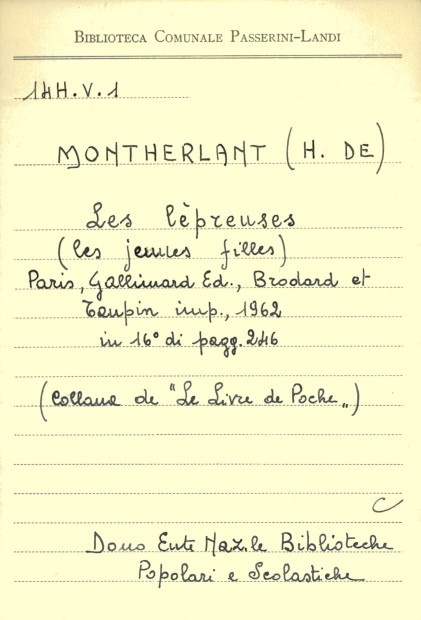 BIBLIOTECA COMUNALE PASSERINI-LANDI
14H.V.1
MONTHERLANT (H. DE)
Les lèpreuses
(les jeunes filles)
Paris, Gallimard Ed., Brodard et
Taupin imp., 1962
in 16° di pagg. 246
(Collana de "Le Livre de Poche„)
C
Dono Ente Naz.le Biblioteche
Popolari e Scolastiche